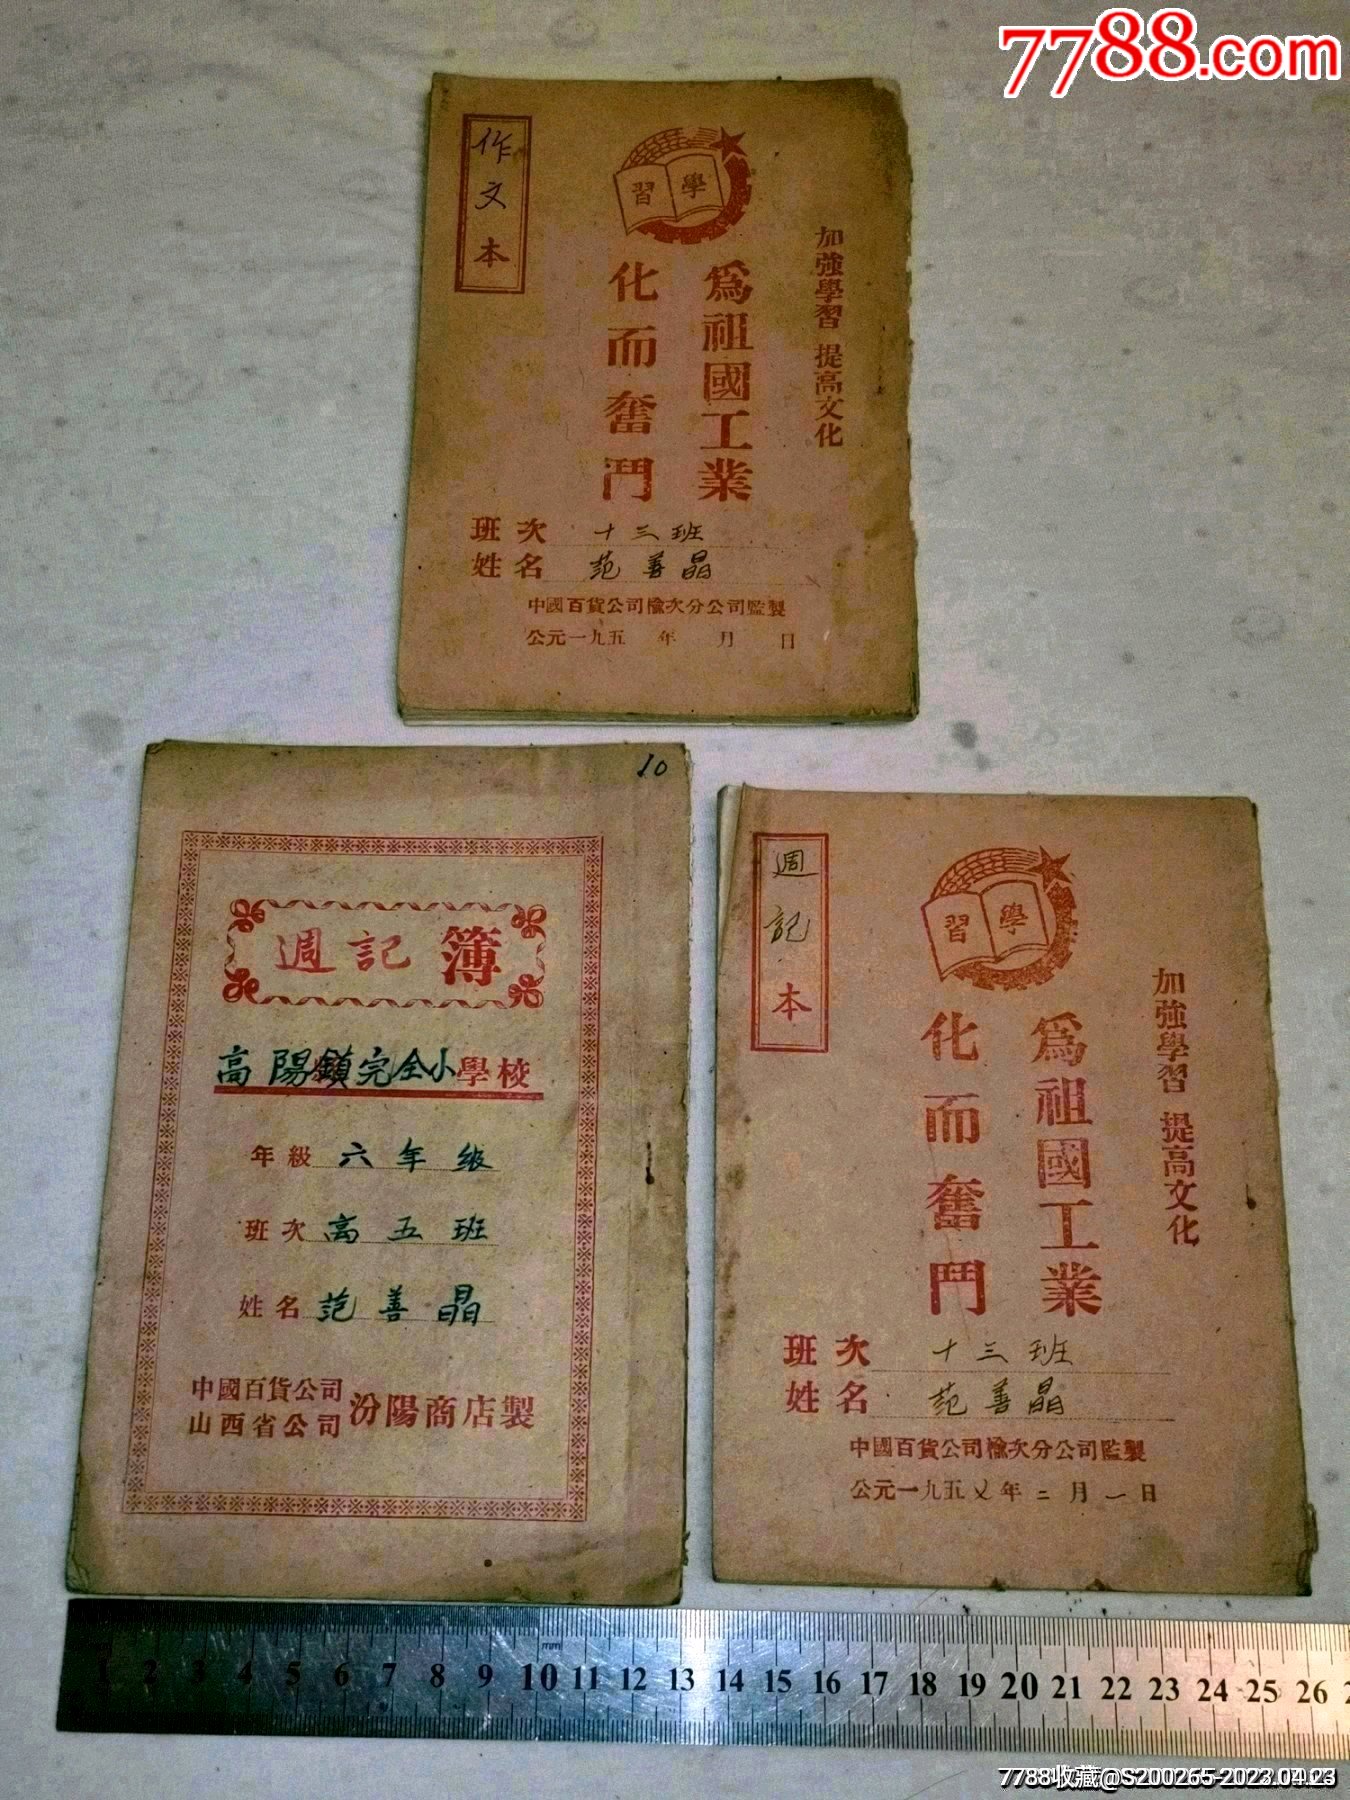 7788.com
作文本
學習
加強學習 提高文化
爲祖國工業
化而奮鬥
班次 十三班
姓名 范善晶
中國百貨公司榆次分公司監製
公元一九五 年 月 日
10
週記簿
高陽鎮完全小學校
年級 六年级
班次 高五班
姓名 范善晶
中國百貨公司
山西省公司
汾陽商店製
週記本
學習
加強學習 提高文化
爲祖國工業
化而奮鬥
班次 十三班
姓名 范善晶
中國百貨公司榆次分公司監製
公元一九五乂年二月一日
mm
1 2 3 4 5 6 7 8 9 10 11 12 13 14 15 16 17 18 19 20 21 22 23 24 25 26
7788收藏@S200265-2023.04.23